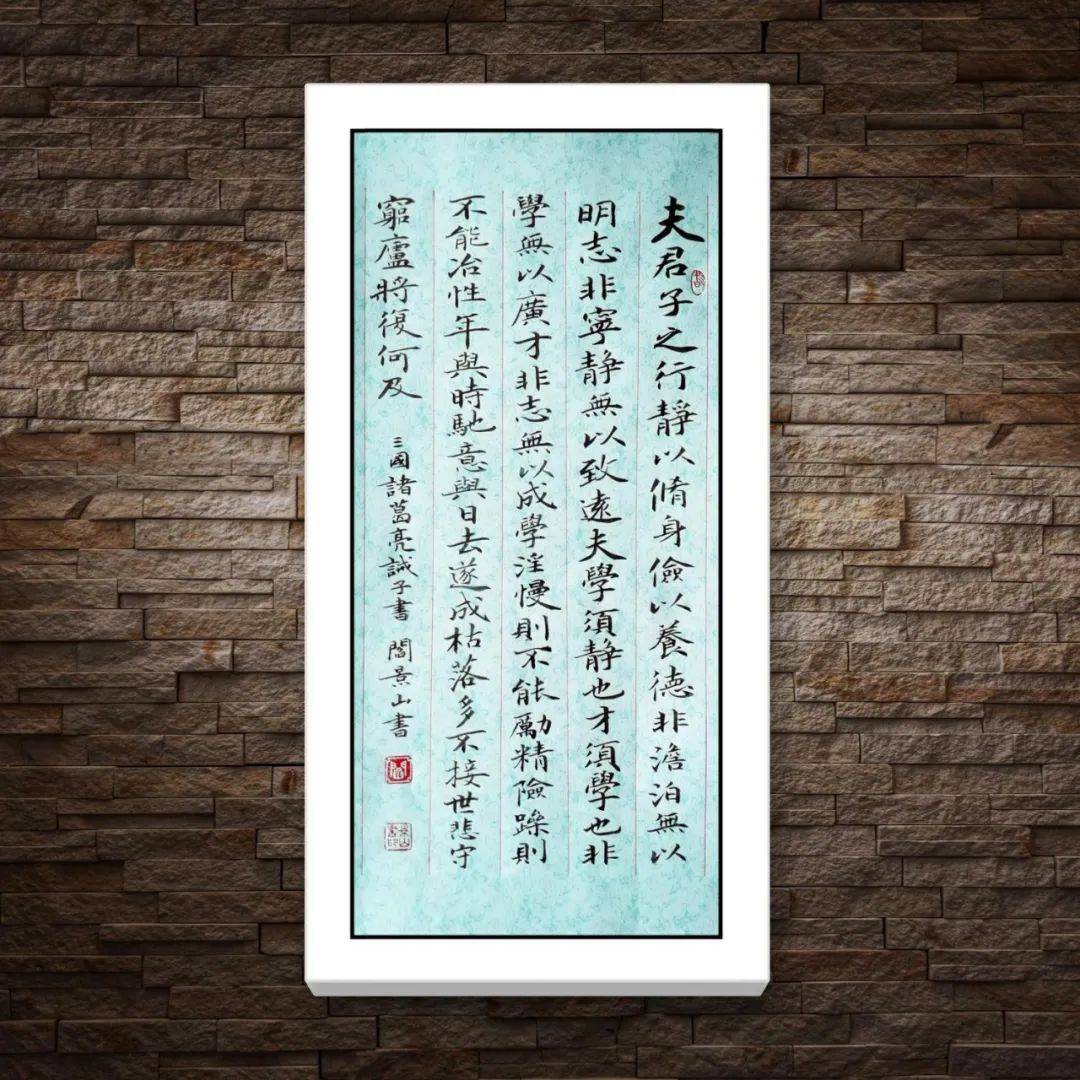 夫君子之行靜以脩身儉以養德非澹泊無以
明志非寧静無以致遠夫學須静也才須學也非
學無以廣才非志無以成學淫慢則不能勵精險躁則
不能冶性年與時馳意與日去遂成枯落多不接世悲守
窮廬將復何及
三國諸葛亮誡子書 閻景山書
閻
景山書印